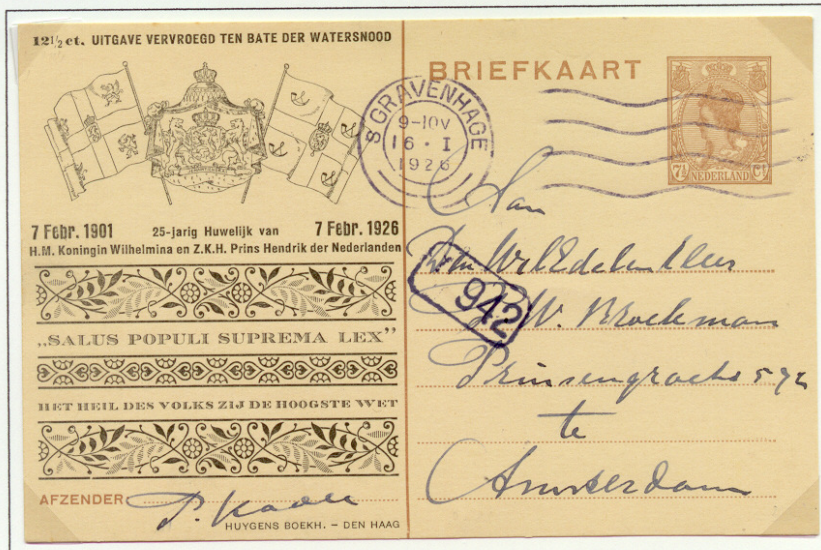 12½ ct. UITGAVE VERVROEGD TEN BATE DER WATERSNOOD
7 Febr. 1901 25-jarig Huwelijk van 7 Febr. 1926
H.M. Koningin Wilhelmina en Z.K.H. Prins Hendrik der Nederlanden
„SALUS POPULI SUPREMA LEX”
HET HEIL DES VOLKS ZIJ DE HOOGSTE WET
AFZENDER P.
HUYGENS BOEKH. – DEN HAAG
BRIEFKAART
'S GRAVENHAGE
9-10V
16 · I
1926
7½ Ct
NEDERLAND
Aan
Den WelEdelen Heer
942
W. Broekman
Prinsengracht 592
te
Amsterdam